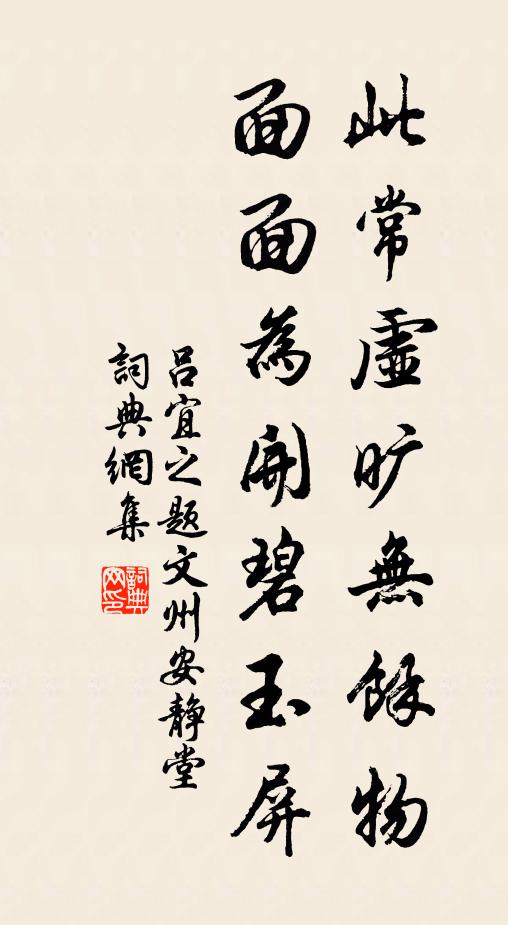 此常虛旷無餘物
面面為開碧玉屏
吕宜之题文州安靜堂
詞典網集
詞典
网印